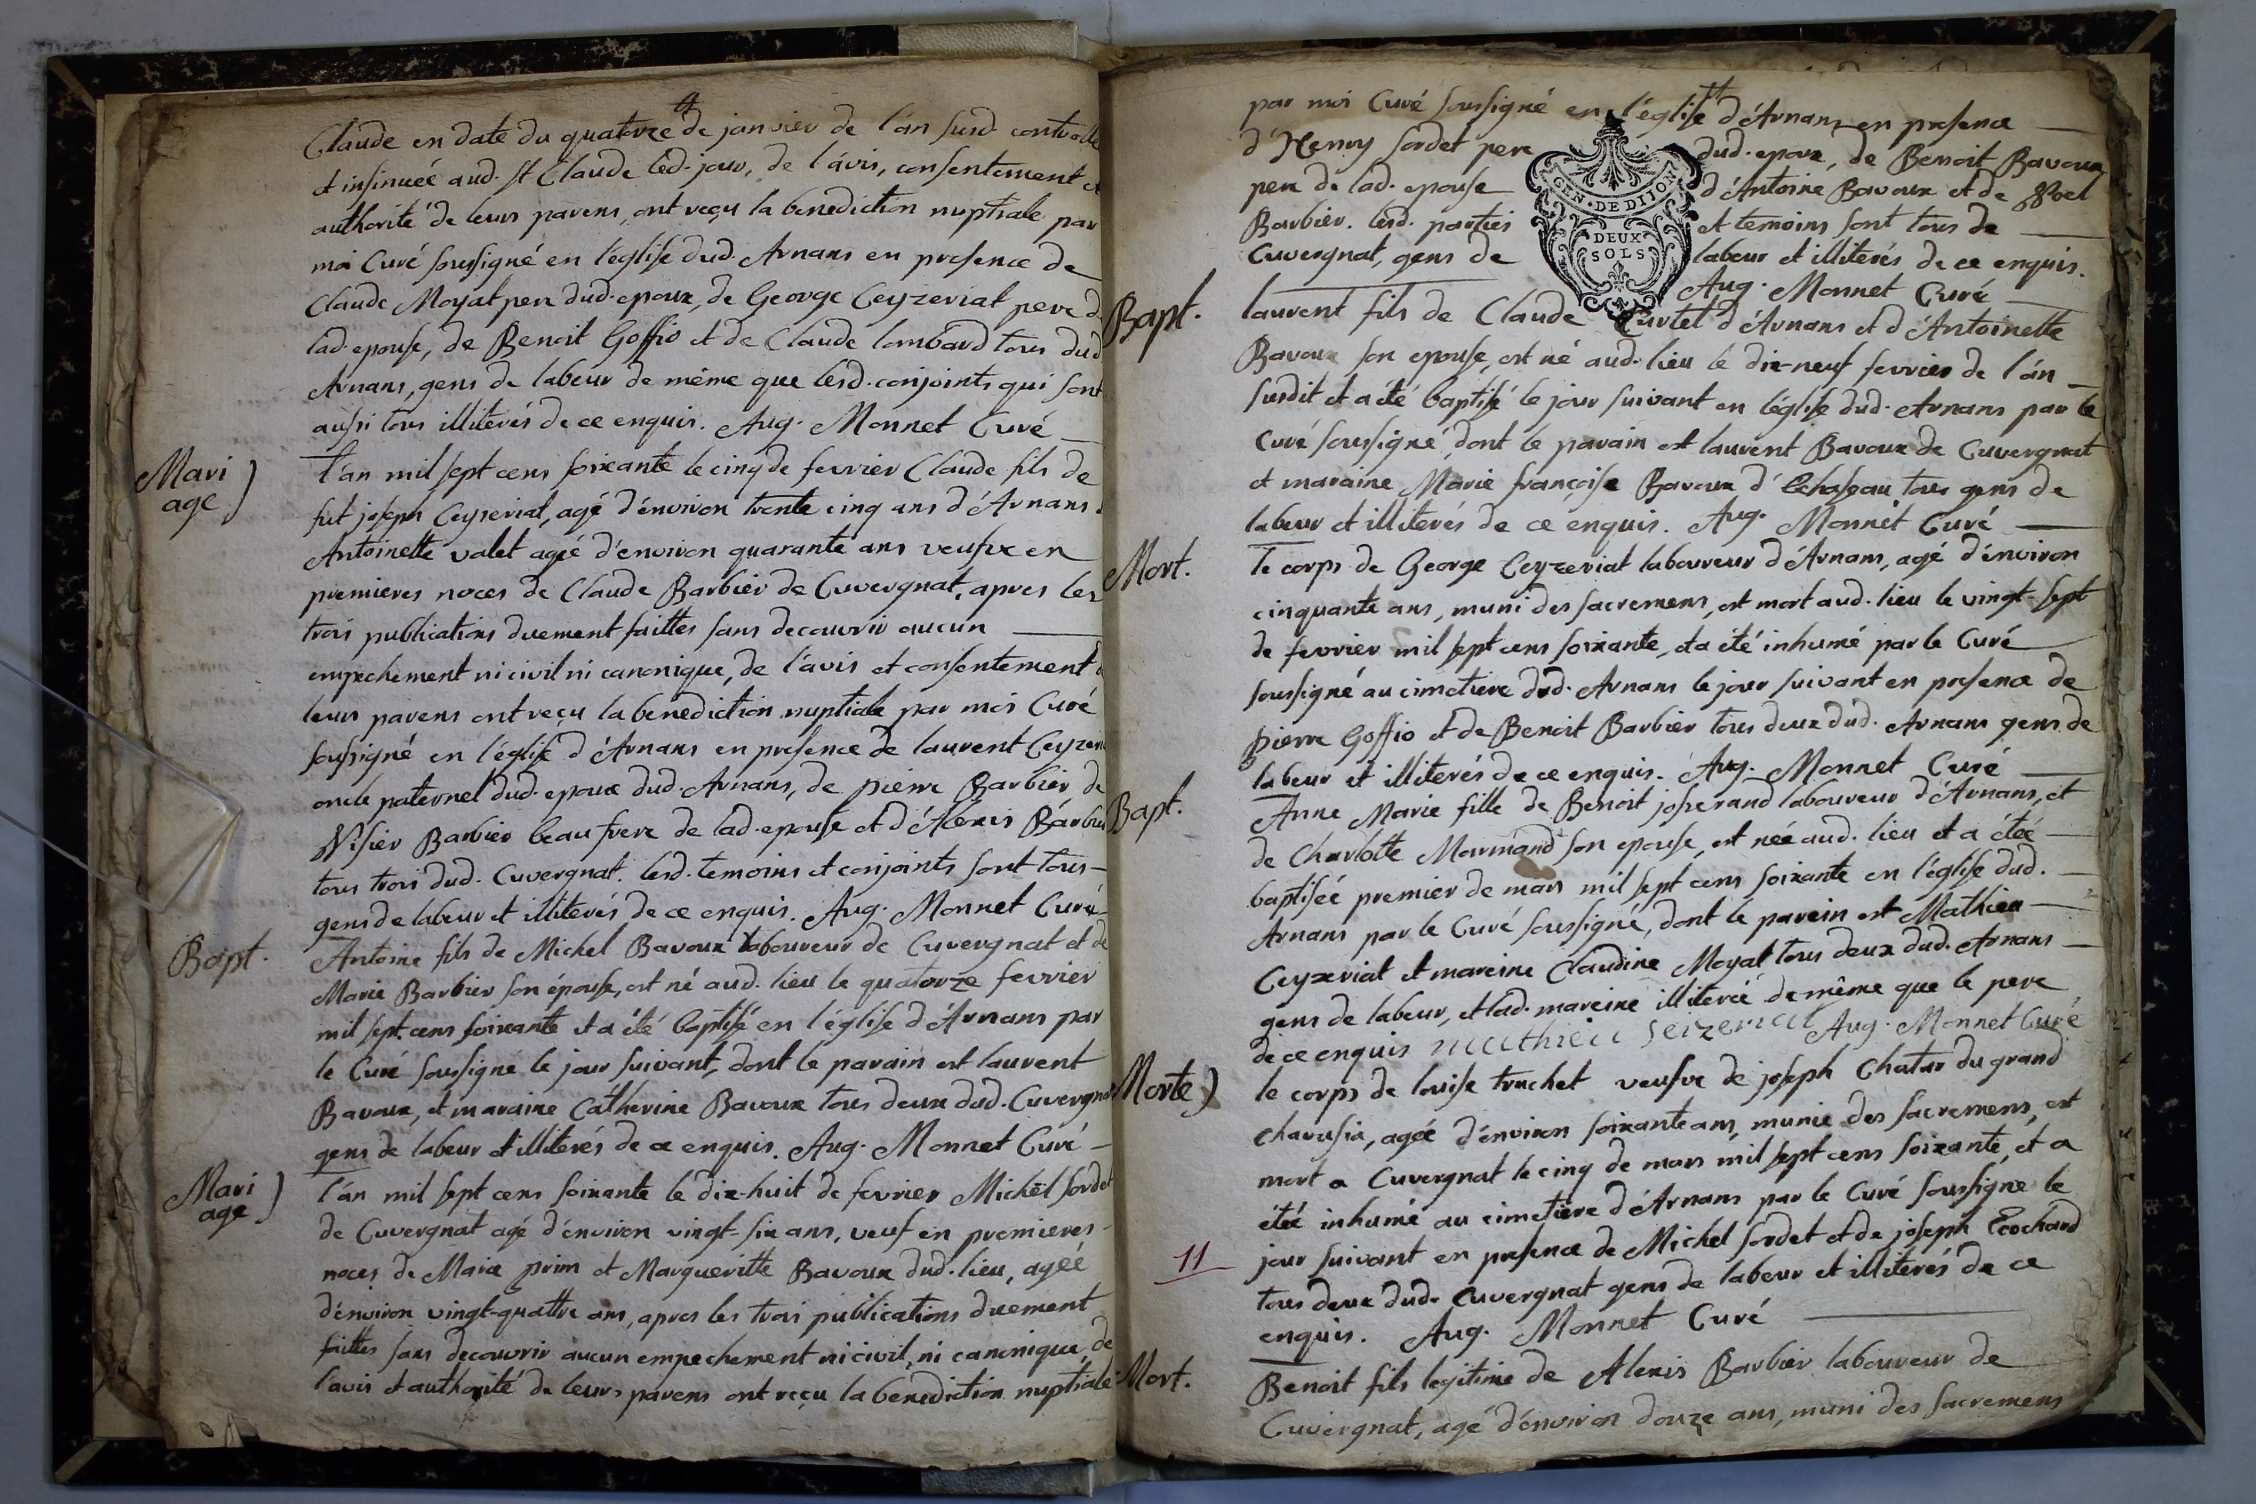 Claude en date du quatorze de janvier de l'án susd controlle
et insinuéé aud. St Claude led. jour, de l'ávis, consentement et
authorité de leurs parens, ont reçu la benediction nuptiale par
moi Curé soussigné en l'église dud. Arnans en presence de
Claude Moyat pere dud. epoux, de George Ceyzeriat pere d
lad. epouse, de Benoit Goffio et de Claude lombard tous dud
Arnans, gens de labeur de même que lesd. conjoints qui sont
aussi tous illiterés de ce enquis. Aug. Monnet Curé
Mari
age )
l'án mil sept cens soixante le cinq de fevrier Claude fils de
fut joseph Ceyseriat, agé d'énviron trente cinq ans d'Arnans
Antoinette valet agéé d'énviron quarante ans veufve en
premieres noces de Claude Barbier de Cuvergnat, apres les
trois publications duement faittes sans decouvrir aucun
empechement ni civil ni canonique, de l'ávis et consentement d
leurs parens ont reçu la benediction nuptiale par moi Curé
soussigné en l'église d'Arnans en presence de laurent Ceyzeri
oncle paternel dud. epoux dud. Arnans, de pierre Barbier de
Barbier beau frere de lad. epouse et d'Aléxis Barbier
tous trois dud. Cuvergnat. lesd. temoins et conjoints sont tous
gens de labeur et illiterés de ce enquis. Aug. Monnet Curé
Bapt.
Antoine fils de Michel Bavoux laboureur de Cuvergnat et de
Marie Barbier son épouse, est né aud. lieu le quatorze fevrier
mil sept cens soixante et a été baptisé en l'église d'Arnans par
le Curé soussigné le jour suivant, dont le parain est laurent
Bavoux, et maraine Catherine Bavoux tous deux dud. Cuvergnat
gens de labeur et illiterés de ce enquis. Aug. Monnet Curé
Mari
age )
l'án mil sept cens soixante le dix-huit de fevrier Michel sordet
de Cuvergnat agé d'énviron vingt-six ans, veuf en premieres
noces de Marie prim et Margueritte Bavoux dud. lieu, agéé
d'énviron vingt-quattre ans, apres les trois publications duement
faittes sans decouvrir aucun empechement ni civil, ni canonique, de
l'avis et authorité de leurs parens ont reçu la benediction nuptiale
par moi Curé soussigné en l'église d'Arnans en presence
d'Henry sordet pere dud. epoux, de Benoit Bavoux
pere de lad. epouse d'Antoine Bavoux et de Noel
Barbier. lesd. parties et temoins sont tous de
Cuvergnat, gens de labeur et illiterés de ce enquis.
Aug. Monnet Curé
GEN · DE DIJON
DEUX
SOLS
Bapt.
laurent fils de Claude Curtet d'Arnans et d'Antoinette
Bavoux son epouse, est né aud. lieu le dix-neuf fevrier de l'án
susdit et a été baptisé le jour suivant en l'église dud. Arnans par le
Curé soussigné, dont le parain est laurent Bavoux de Cuvergnat
et maraine Marie françoise Bavoux d'Echaseau tous gens de
labeur et illiterés de ce enquis. Aug. Monnet Curé
Mort.
le corps de George Ceyzeriat laboureur d'Arnans, agé d'énviron
cinquante ans, muni des sacremens, est mort aud. lieu le vingt-sept
de fevrier mil sept cens soixante, et a été inhumé par le Curé
soussigné au cimetiere dud. Arnans le jour suivant en presence de
pierre Goffio et de Benoit Barbier tous deux dud. Arnans gens de
labeur et illiterés de ce enquis. Aug. Monnet Curé
Bapt.
Anne Marie fille de Benoit josserand laboureur d'Arnans, et
de Charlotte Marmand son epouse, est néé aud. lieu et a étéé
baptiséé premier de mars mil sept cens soixante en l'église dud.
Arnans par le Curé soussigné, dont le parein est Mathieu
Ceyzeriat et mareine Claudine Moyat tous deux dud. Arnans
gens de labeur, et lad. mareine illiteréé de même que le pere
de ce enquis mathieu seizeriat Aug. Monnet Curé
Morte )
le corps de louise truchet veufve de joseph Chatar du grand
charusia, agéé d'énviron soixante ans, munie des sacremens, est
mort a Cuvergnat le cinq de mars mil sept cens soixante, et a
étéé inhumé au cimetiere d'Arnans par le Curé soussigné le
jour suivant en presence de Michel sordet et de joseph Ecochard
tous deux dud. Cuvergnat gens de labeur et illiterés de ce
enquis. Aug. Monnet Curé
11
Mort.
Benoit fils legitime de Alexis Barbier laboureur de
Cuvergnat, agé d'énviron douze ans, muni des sacremens